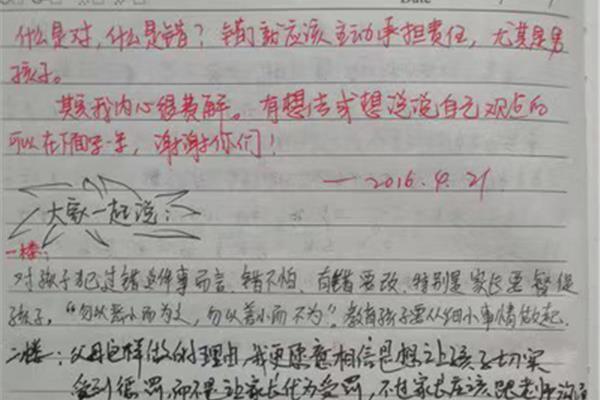 Date
什么是对，什么是错？错了就应该主动承担责任，尤其是男
孩子。
其实我内心很费解。有想法或想说说自己观点的
可以在下面写一写，谢谢你们！
—2016.4.21
大家一起说：
一楼：
对孩子犯过错这件事而言，错不怕，有错要改，特别是家长要督促
孩子，“勿以恶小而为之，勿以善小而不为”。教育孩子要从细小事情做起。
二楼：父母这样做的理由，我更愿意相信是想让孩子切实
受到惩罚，而不是让家长代为受罚，不过家长应该跟老师沟通